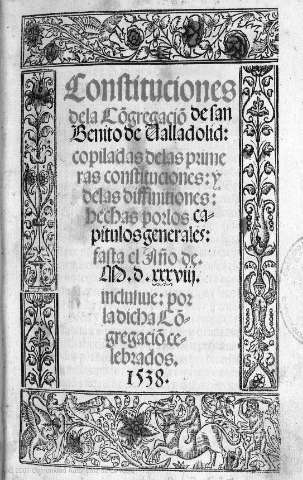 Constituciones
dela Cõgregaciõ de san
Benito de Valladolid:
copiladas delas prime
ras constituciones: y
delas diffinitiones:
hechas porlos ca-
pitulos generales:
fasta el Año de.
M. d. xxxviij.
inclusiue: por
la dicha Cõ-
gregaciõ ce-
lebrados.
1538.